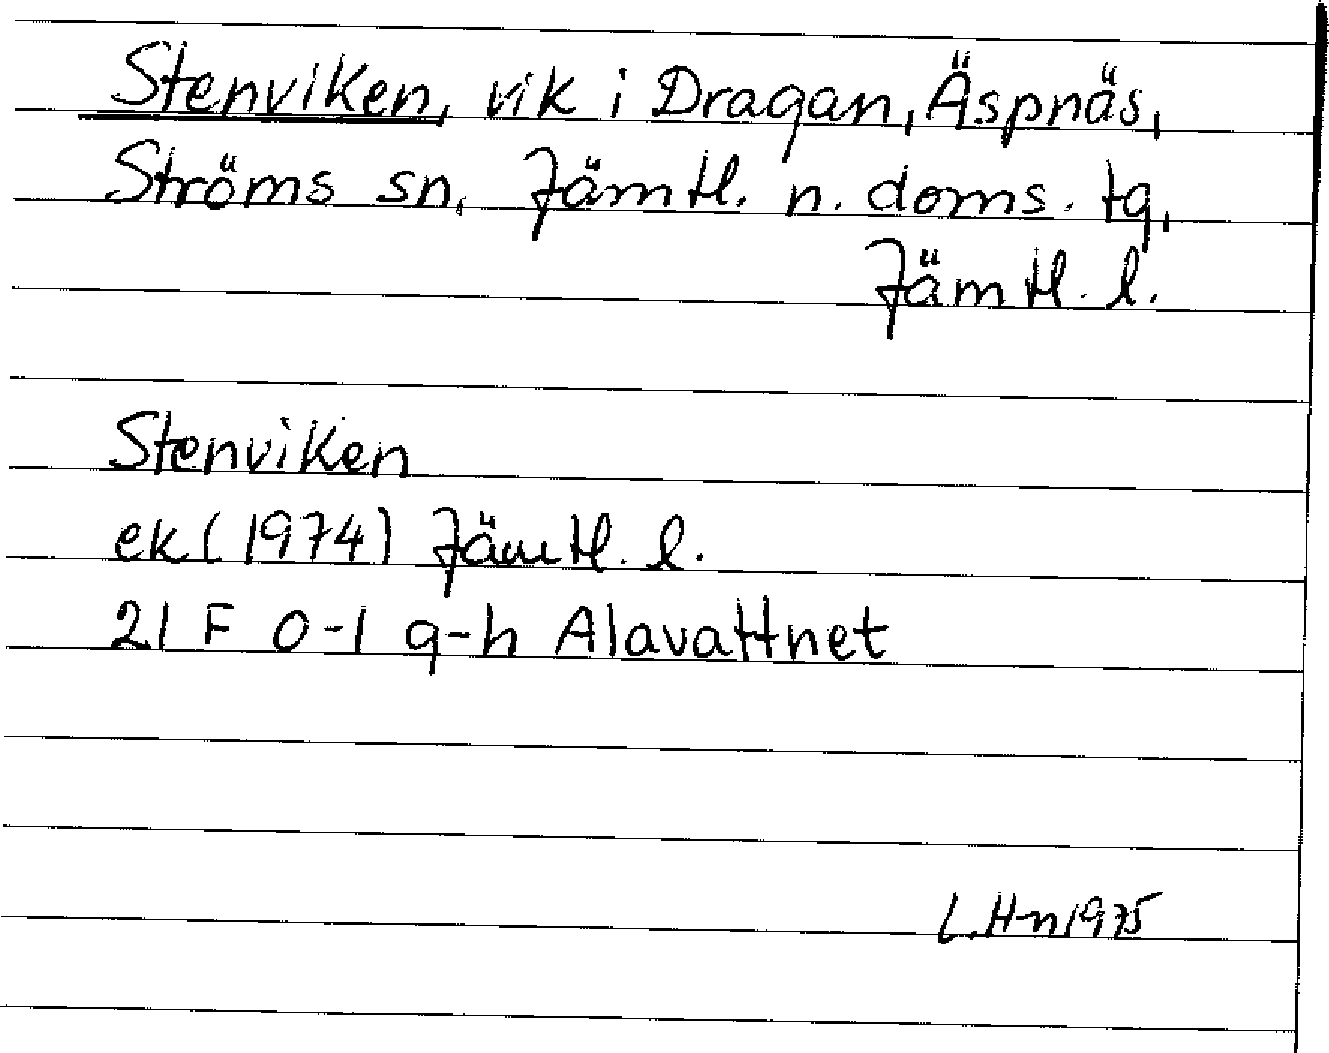 Stenviken, vik i Dragan, Äspnäs,
Ströms sn, Jämtl. n. doms. tg,
Jämtl. l.
Stenviken
ek (1974) Jämtl. l.
21 F 0-1 g-h Alavattnet
L.H-n 1975